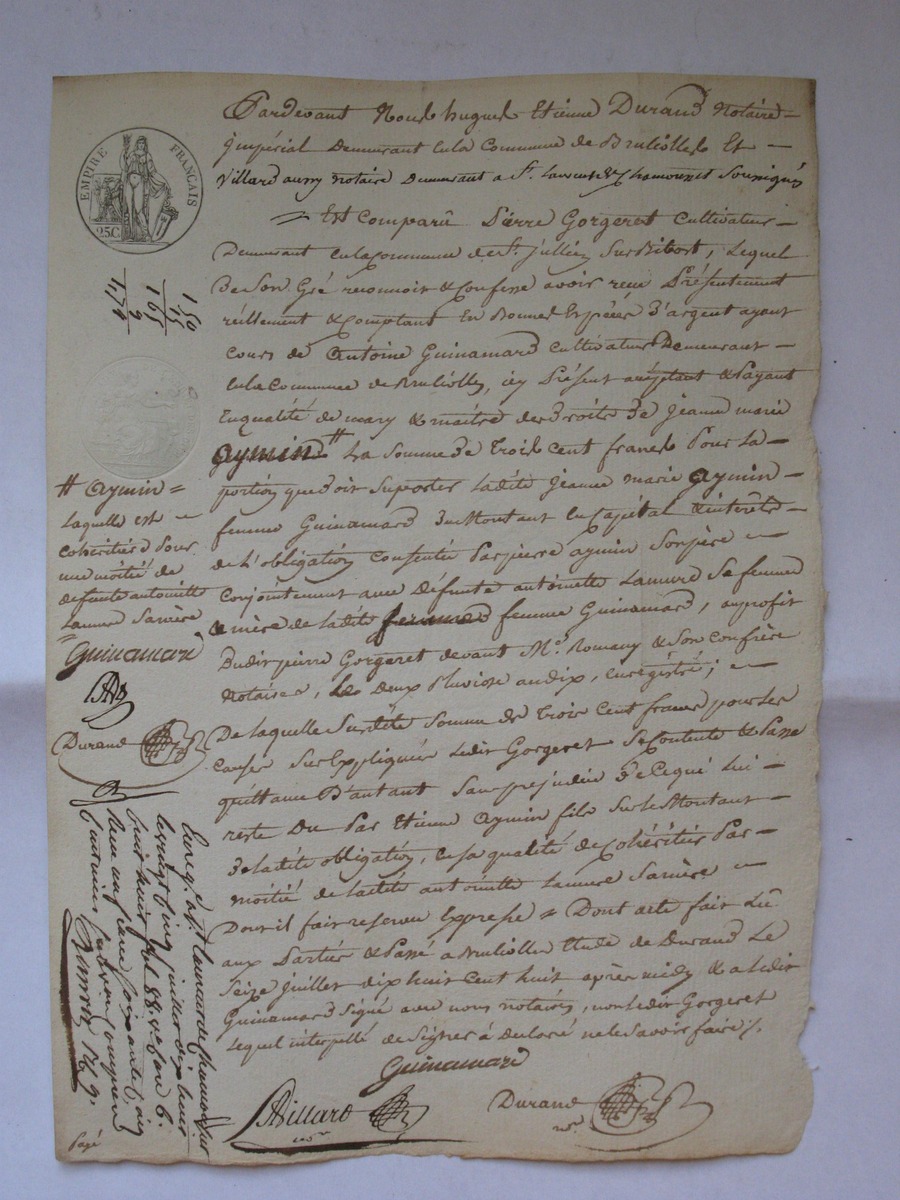 EMPIRE FRANÇAIS
25C.
150
15
165
9
1,74
Pardevant Nous hugues Etienne Durand Notaire
jmpérial Demeurant enla Commune de Brulliolles Et
Villard aussy notaire demeurant a St. Laurent de Chamousset Soussignés
Est Comparû Pierre Gorgeret Cultivateur
Demeurant enlacommune de St. jullien Sur Bibost, Lequel
de Son Gré reconnoit & Confesse avoir reçu Présentement
réellement & Comptant En Bonnes Espèces d'argent ayant
Cours de Antoine Guinamard Cultivateur Demeurant
enla Commune de Brulliolles, icy Présent acceptant & Payant
Enqualité de mary & maitre des droits de jeanne marie
aymin # La Somme de trois Cent francs Pour La
portion que doit Suporter Ladite jeanne marie aymin
femme Guinamard Du Montant en Capital & interets
de L'obligation Consentie Par pierre aymin Son père
Conjointement avec Défunte antoinette Lamure Sa femme
& mère de Ladite femme Guinamard, au profit
Dudit pierre Gorgeret devant Me. Romany & Son Confrère
Notaires, Le deux Pluviose an dix, Enrégistré;
De laquelle Susdite Somme de Trois Cent francs pour Les
Causes Sus Expliquées Ledit Gorgeret Se Contente & Passe
quittance D'autant Sans prejudice de Ce qui Lui
reste Du Par Etienne aymin fils Sur Le Montant
de Ladite obligation, en Sa qualité de Cohéritier Par
moitié de Ladite antoinette Lamure Sa mère
Dont il fait reserve Expresse = Dont acte fait Lû
aux Parties & Passé à Brulliolles Etude de Durand Le
Seize juillet dix huit Cent huit après midy & a Ledit
Guinamard Signé avec nous notaires, non Ledit Gorgeret
Lequel interpellé de Signer à déclaré ne le Savoir faire /.
Guinamard
Villard
nre
Durand
nre
# aymin =
Laquelle est
Cohéritière Pour
une moitié de
defunte antoinette
Lamure Sa mère
Guinamard
Durand
Enreg. a St. Laurent de Chamousset
le vingt cinq juillet dix huit
cent huit fol. 88. vo. Case 6.
Reçu un franc soixante cinq
centimes
Payé